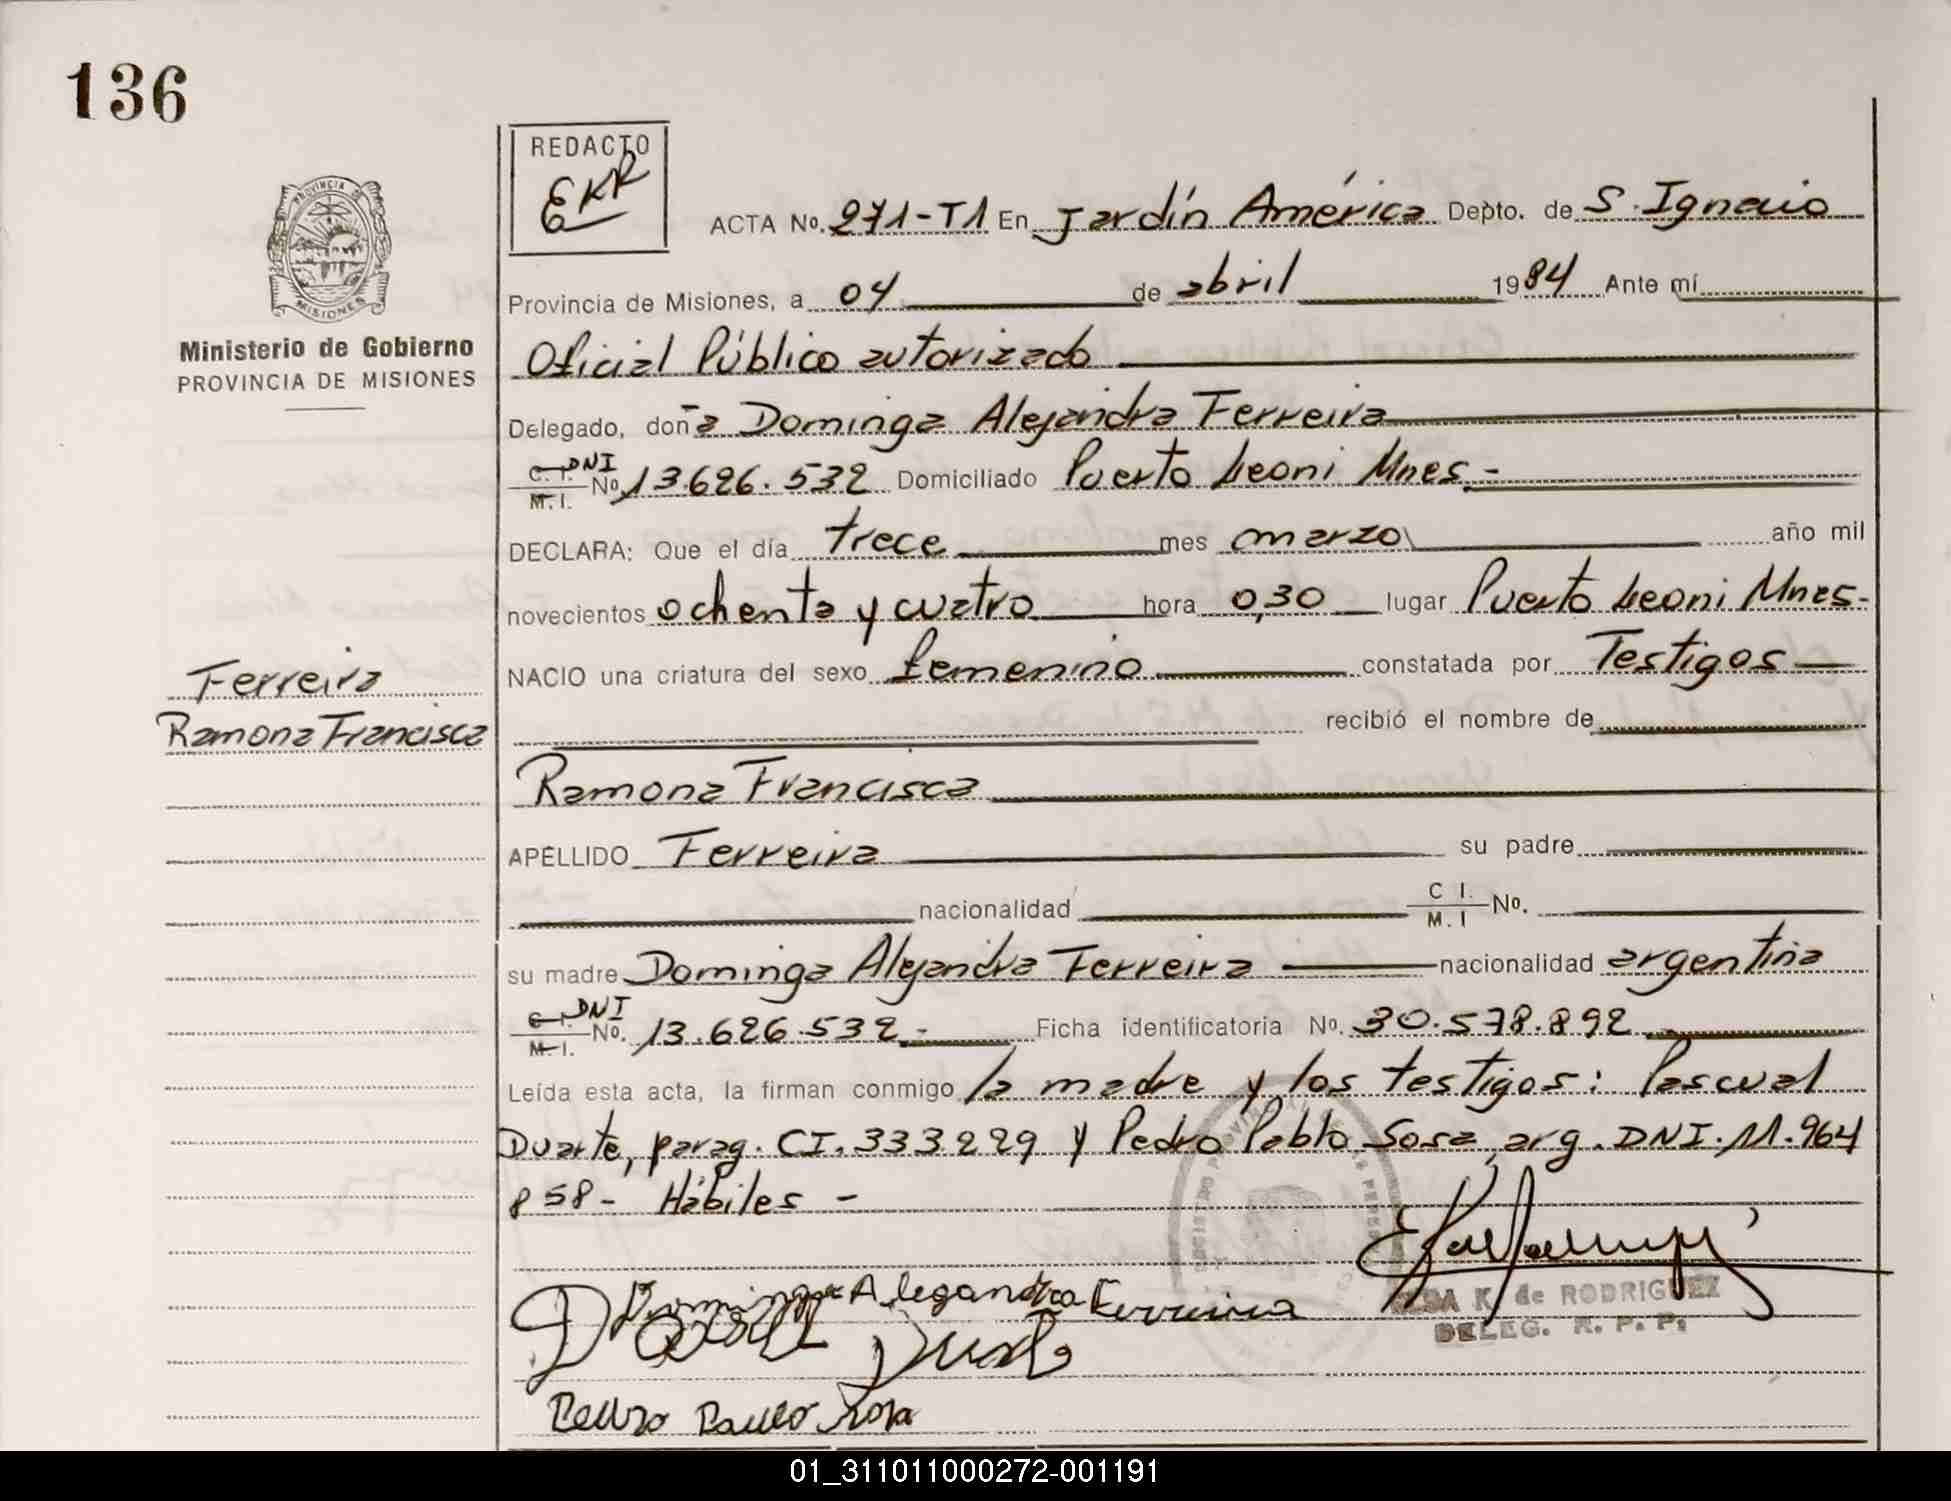 136
REDACTO
EKR
PROVINCIA DE
MISIONES
Ministerio de Gobierno
PROVINCIA DE MISIONES
ACTA No. 271-T1 En Jardín América Depto. de S. Ignacio
Provincia de Misiones, a 04 de abril 1984 Ante mí
Oficial Público autorizado
Delegado, doña Dominga Alejandra Ferreira
C. I. DNI
M. I. No 13.626.532 Domiciliado Puerto Leoni Mnes.-
DECLARA: Que el día trece mes marzo año mil
novecientos ochenta y cuatro hora 0,30 lugar Puerto Leoni Mnes-
NACIO una criatura del sexo femenino constatada por Testigos
Ferreira
Ramona Francisca
recibió el nombre de
Ramona Francisca
APELLIDO Ferreira su padre
nacionalidad C I. M. I No.
su madre Dominga Alejandra Ferreira nacionalidad argentina
C. I. DNI
M. I. No. 13.626.532.- Ficha identificatoria No. 30.578.892
Leída esta acta, la firman conmigo la madre y los testigos: Pascual
Duarte, parag. CI. 333.229 y Pedro Pablo Sosa, arg. DNI. 11.964
858- Hábiles -
Dominga Alegandra Ferreira
ELSA K. de RODRIGUEZ
DELEG. R. P. P.
Pedro Pablo Sosa
01_311011000272-001191